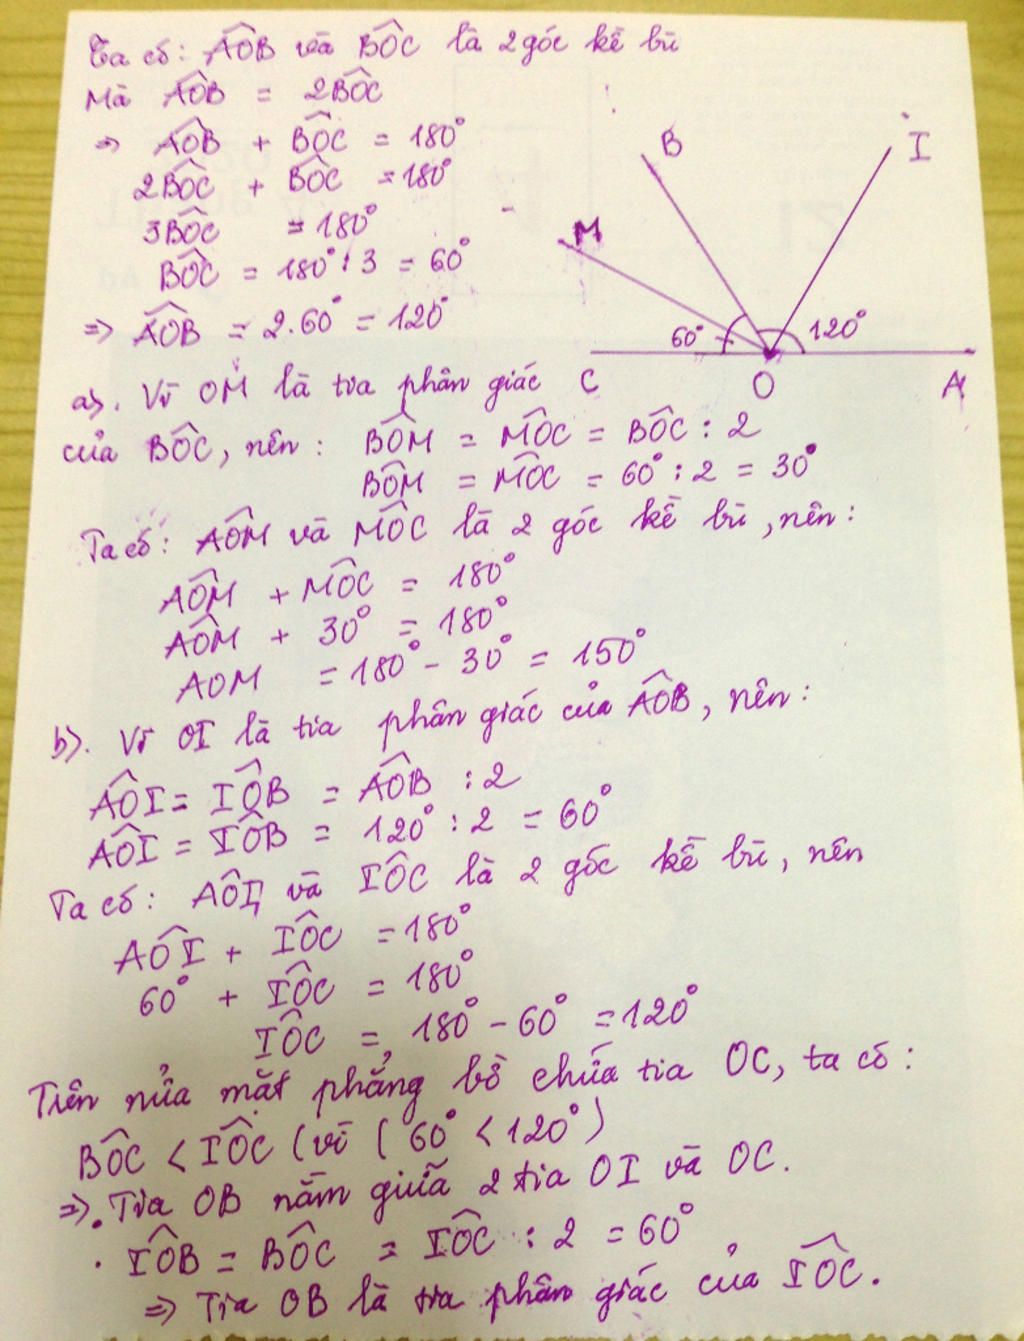 Ta có: AÔB và BÔC là 2 góc kề bù
Mà AÔB = 2BÔC
=> AÔB + BÔC = 180°
2BÔC + BÔC = 180°
3BÔC = 180°
BÔC = 180° : 3 = 60°
=> AÔB = 2.60° = 120°
B
I
M
60°
120°
C
O
A
a). Vì OM là tia phân giác
của BÔC, nên : BÔM = MÔC = BÔC : 2
BÔM = MÔC = 60° : 2 = 30°
Ta có: AÔM và MÔC là 2 góc kề bù, nên :
AÔM + MÔC = 180°
AÔM + 30° = 180°
AOM = 180° - 30° = 150°
b). Vì OI là tia phân giác của AÔB, nên :
AÔI = IÔB = AÔB : 2
AÔI = IÔB = 120° : 2 = 60°
Ta có: AÔI và IÔC là 2 góc kề bù, nên
AÔI + IÔC = 180°
60° + IÔC = 180°
IÔC = 180° - 60° = 120°
Trên nửa mặt phẳng bờ chứa tia OC, ta có :
BÔC < IÔC (vì ( 60° < 120°)
=>. Tia OB nằm giữa 2 tia OI và OC.
. IÔB = BÔC = IÔC : 2 = 60°
=> Tia OB là tia phân giác của IÔC.